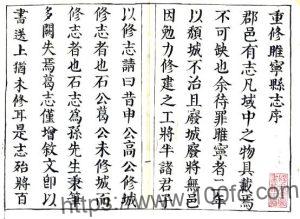 重修睢寧縣志序
郡邑有志凡域中之物具載焉
不可缺也余待罪睢寧者
以頹城不治且廢城廢將無邑
因勉力修建之工將半諸君子
以修志請曰昔申公高公修城
修志者也石公葛公未修城而
修志者也石志為孫先生秉筆
多闕失焉葛志僅增敘文即以
書送上猶未修耳是志殆將百